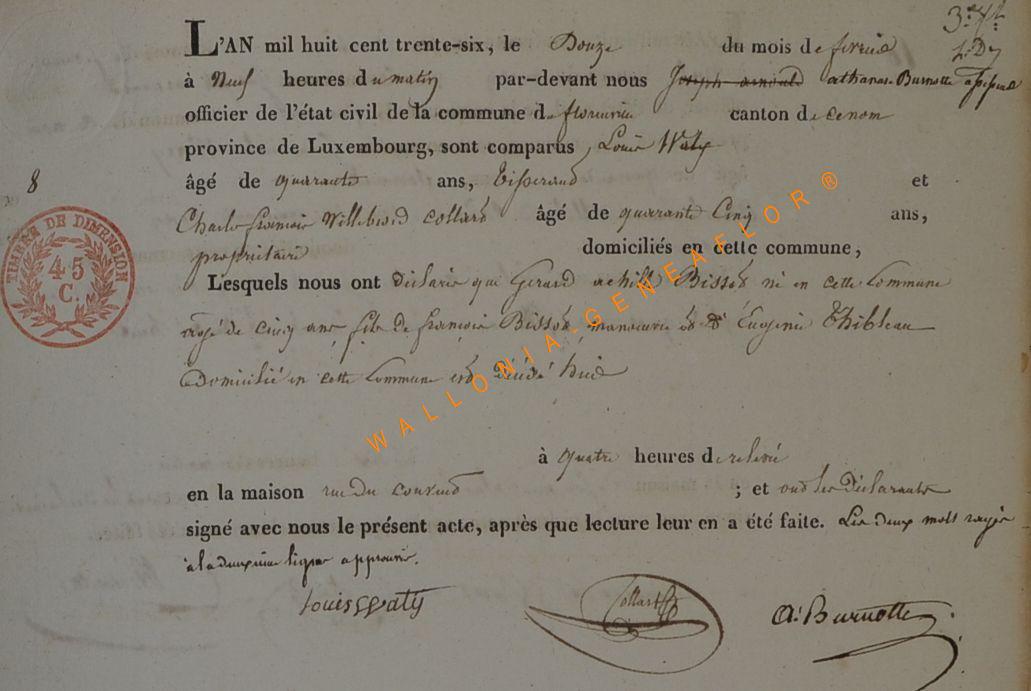 3e
L'AN mil huit cent trente-six, le Douze du mois de fevrier
à Neuf heures du matin par-devant nous Joseph arnould athanase Burnotte
officier de l'état civil de la commune de florenville canton de
province de Luxembourg, sont comparus Louis Waty
8
âgé de quarante ans, tisserand et
Charles françois Willebrord Collard âgé de quarante Cinq ans,
propriétaire domiciliés en cette commune,
TIMBRE DE DIMENSION
45
C.
Lesquels nous ont déclaré que Gerard achille Bissot né en cette Commune
agé de cinq ans fils de françois Bissot, manoeuvre et d'Eugénie Thibleau
Domicilié en cette Commune est Décédé hier
à quatre heures de relevé
en la maison rue du couvent ; et ont les Déclarants
signé avec nous le présent acte, après que lecture leur en a été faite. Les deux mots rayés
à la deuxième ligne approuvés.
Louis Waty Collart A. Burnotte
WALLONIA-GENEAFLOR®